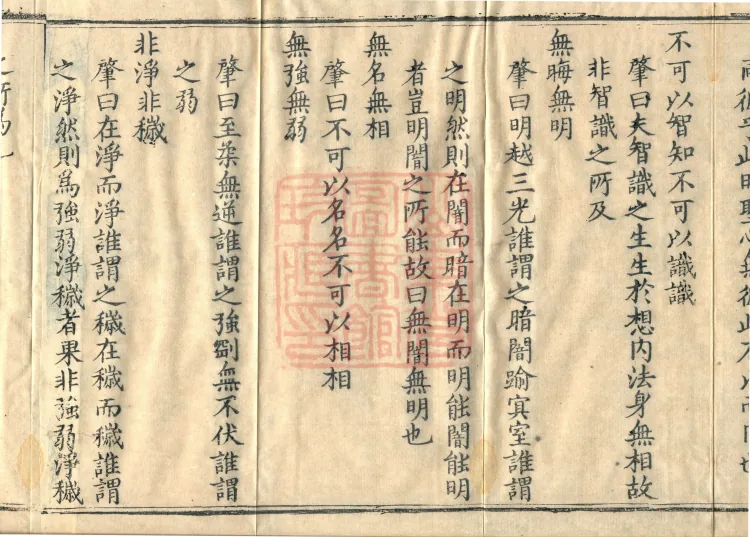 不可以智知不可以識識
肇曰夫智識之生生於想内法身無相故
非智識之所及
無晦無明
肇曰明越三光誰謂之暗闇踰㝠室誰謂
之明然則在闇而暗在明而明能闇能明
者豈明闇之所能故曰無闇無明也
無名無相
肇曰不可以名名不可以相相
無強無弱
肇曰至柔無逆誰謂之強剛無不伏誰謂
之弱
非淨非穢
肇曰在淨而淨誰謂之穢在穢而穢誰謂
之淨然則爲強弱淨穢者果非強弱淨穢